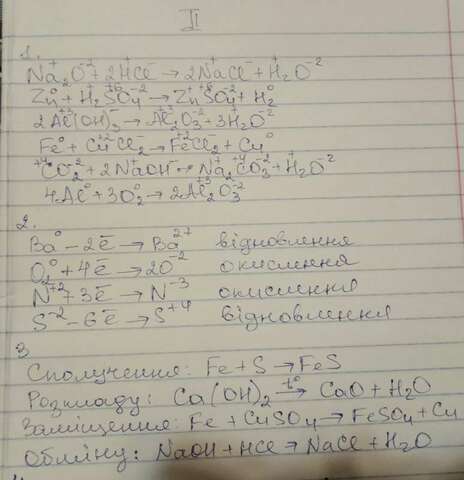 II
1.
Na₂⁺O⁻² + 2H⁺Cl⁻ → 2Na⁺Cl⁻ + H₂⁺O⁻²
Zn⁰ + H₂⁺S⁺⁶O₄⁻² → Zn⁺S⁺⁶O₄⁻² + H₂⁰
2Al(OH)₃ → Al₂⁺³O₃⁻² + 3H₂⁺O⁻²
Fe⁰ + Cu⁺²Cl₂⁻ → Fe⁺²Cl₂⁻ + Cu⁰
C⁺⁴O₂⁻² + 2NaOH → Na₂⁺C⁺⁴O₃⁻² + H₂⁺O⁻²
4Al⁰ + 3O₂⁰ → 2Al₂⁺³O₃⁻²
2.
Ba⁰ - 2ē → Ba²⁺ відновлення
O₂⁰ + 4ē → 2O⁻² окислення
N⁺² + 3ē → N⁻³ окислення
S⁻² - 6ē → S⁺⁴ відновлення
3
Сполучення: Fe + S → FeS
Розкладу: Ca(OH)₂ →t° CaO + H₂O
Заміщення: Fe + CuSO₄ → FeSO₄ + Cu
Обміну: NaOH + HCl → NaCl + H₂O